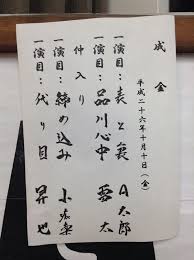 成金
平成二十六年十月十日(金)
一演目:表と裏 A太郎
一演目:品川心中 雷太
仲入り
一演目:締め込み 小痴楽
一演目:代り目 昇也